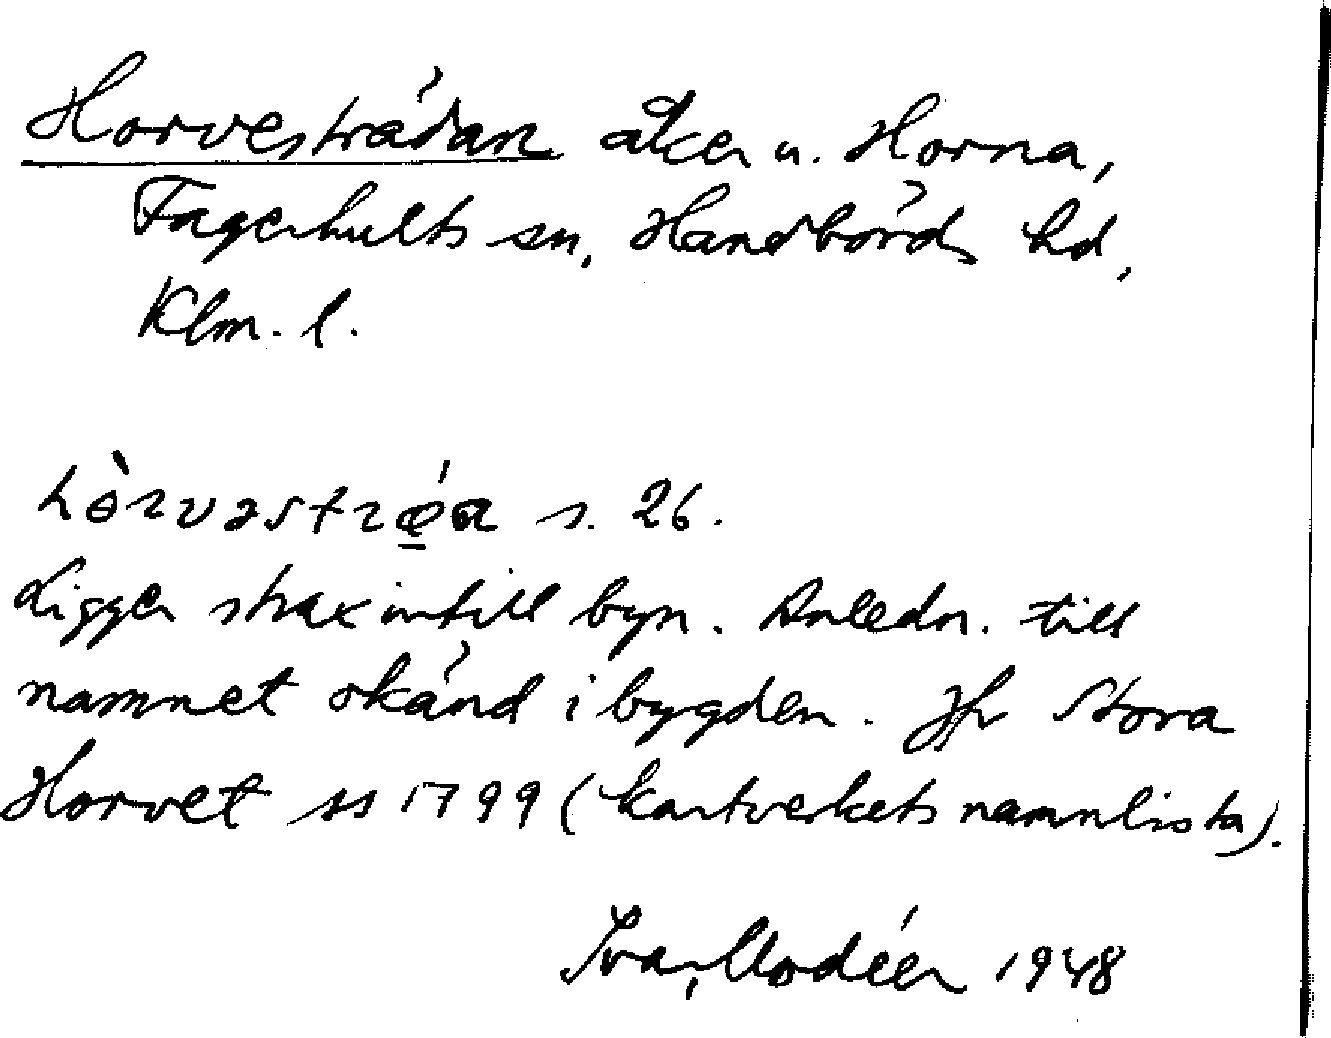 Horvesträdan åker u. Horna,
Fagerhults sn, Handbörds hd,
Klm. l.
s. 26.
Ligger strax intill byn. Anledn. till
namnet okänd i bygden. Jfr Stora
Horvet ss 1799 (kartverkets namnlista).
Ivar Modéer 1948